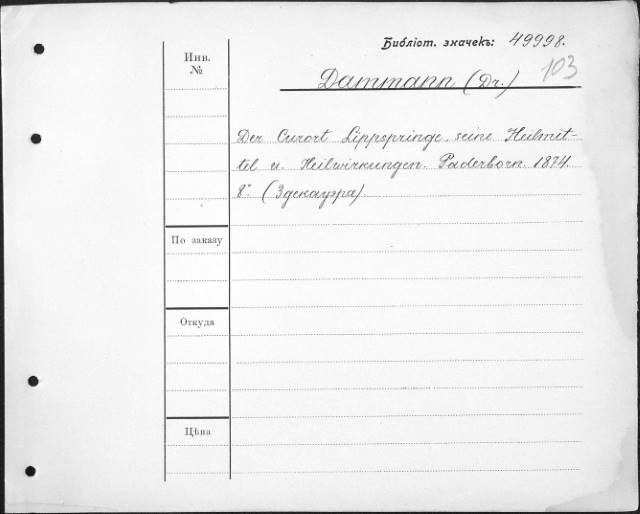 Библіот. значекъ: 49998.
103
Инв. №
Dammann (Dr.)
Der Curort Lippspringe, seine Heilmit-
tel u. Heilwirkungen. Paderborn. 1874.
8° (Здекауэра)
По заказу
Откуда
Цѣна